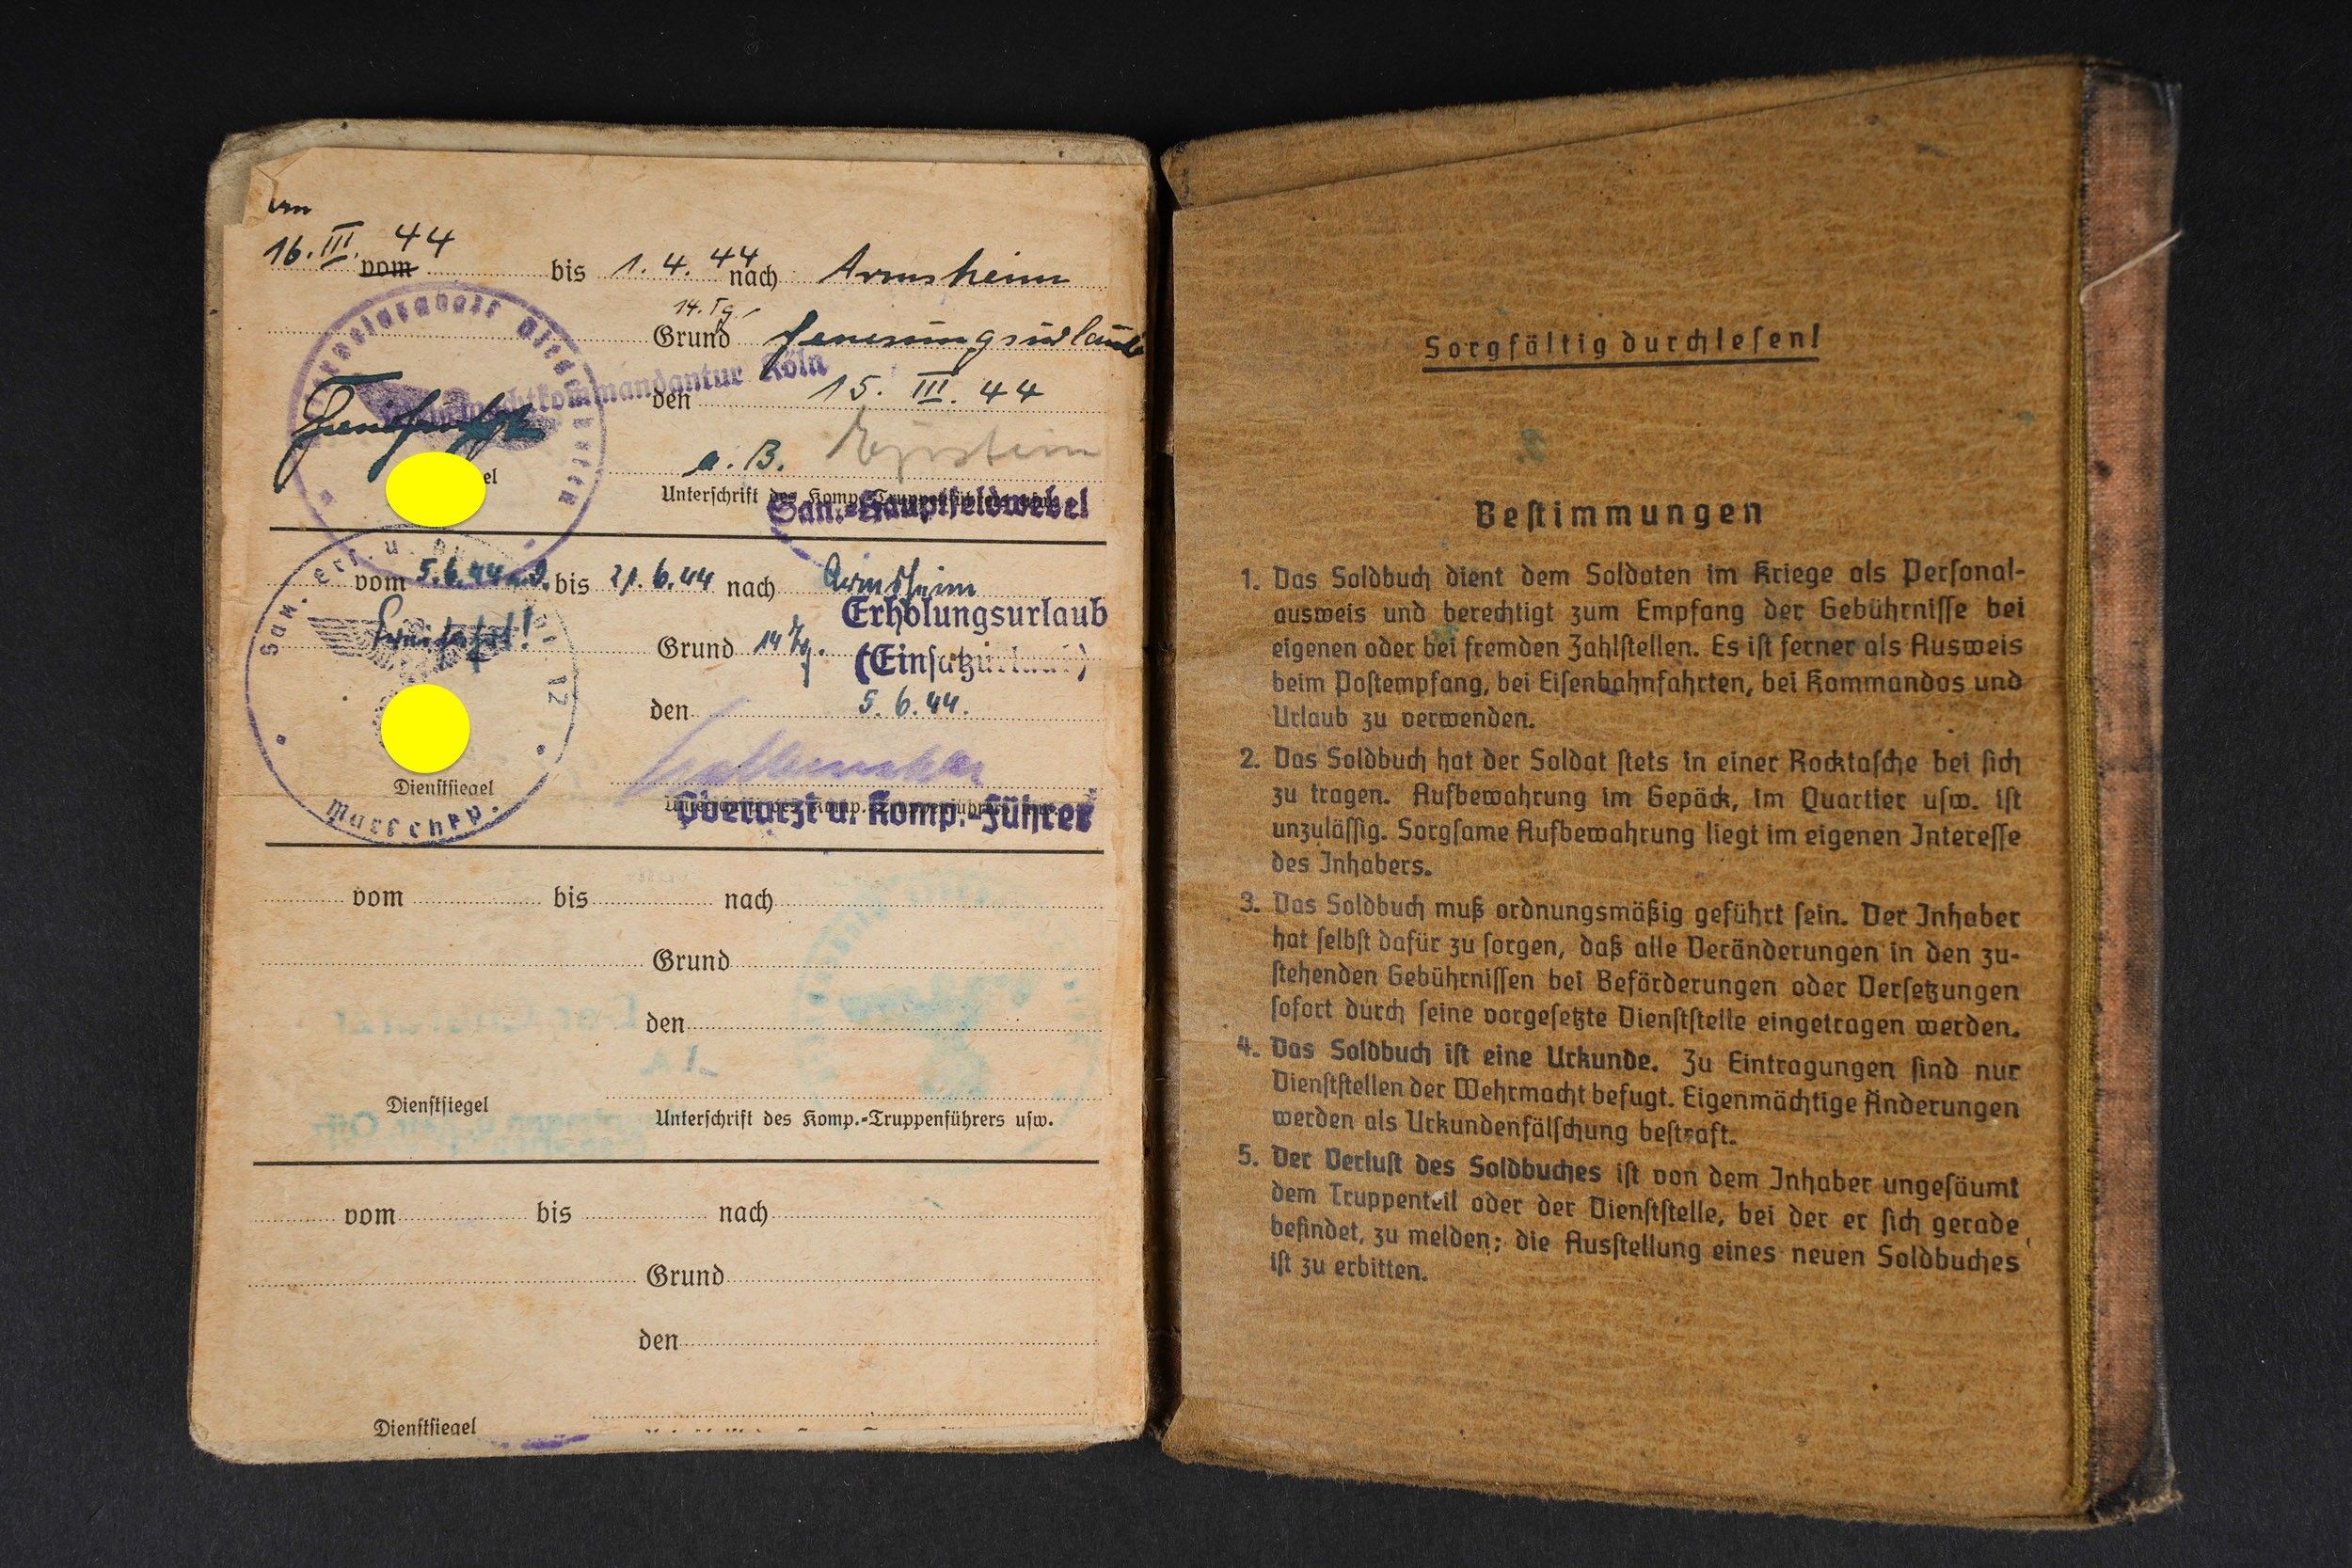 16. III. 44
vom bis 1. 4. 44 nach Armsheim
14. Tg.
Grund Genesungsurlaub
Wehrmachtkommandantur Köln
den 15. III. 44
a. B.
Unterschrift des Komp.-Truppenführers
San.-Hauptfeldwebel
vom 5.6.44 bis 21.6.44 nach Armsheim
Erholungsurlaub
Grund 14 Tg. (Einsatzurlaub)
den 5.6.44.
San. Ers. u.
12
Dienstsiegel
Marschkp.
Oberarzt u. Komp.-Führer
vom bis nach
Grund
den
Dienstsiegel
Unterschrift des Komp.-Truppenführers usw.
vom bis nach
Grund
den
Dienstsiegel
Sorgfältig durchlesen!
Bestimmungen
1. Das Soldbuch dient dem Soldaten im Kriege als Personal-
ausweis und berechtigt zum Empfang der Gebührnisse bei
eigenen oder bei fremden Zahlstellen. Es ist ferner als Ausweis
beim Postempfang, bei Eisenbahnfahrten, bei Kommandos und
Urlaub zu verwenden.
2. Das Soldbuch hat der Soldat stets in einer Rocktasche bei sich
zu tragen. Aufbewahrung im Gepäck, im Quartier usw. ist
unzulässig. Sorgsame Aufbewahrung liegt im eigenen Interesse
des Inhabers.
3. Das Soldbuch muß ordnungsmäßig geführt sein. Der Inhaber
hat selbst dafür zu sorgen, daß alle Veränderungen in den zu-
stehenden Gebührnissen bei Beförderungen oder Versetzungen
sofort durch seine vorgesetzte Dienststelle eingetragen werden.
4. Das Soldbuch ist eine Urkunde. Zu Eintragungen sind nur
Dienststellen der Wehrmacht befugt. Eigenmächtige Änderungen
werden als Urkundenfälschung bestraft.
5. Der Verlust des Soldbuches ist von dem Inhaber ungesäumt
dem Truppenteil oder der Dienststelle, bei der er sich gerade
befindet, zu melden; die Ausstellung eines neuen Soldbuches
ist zu erbitten.